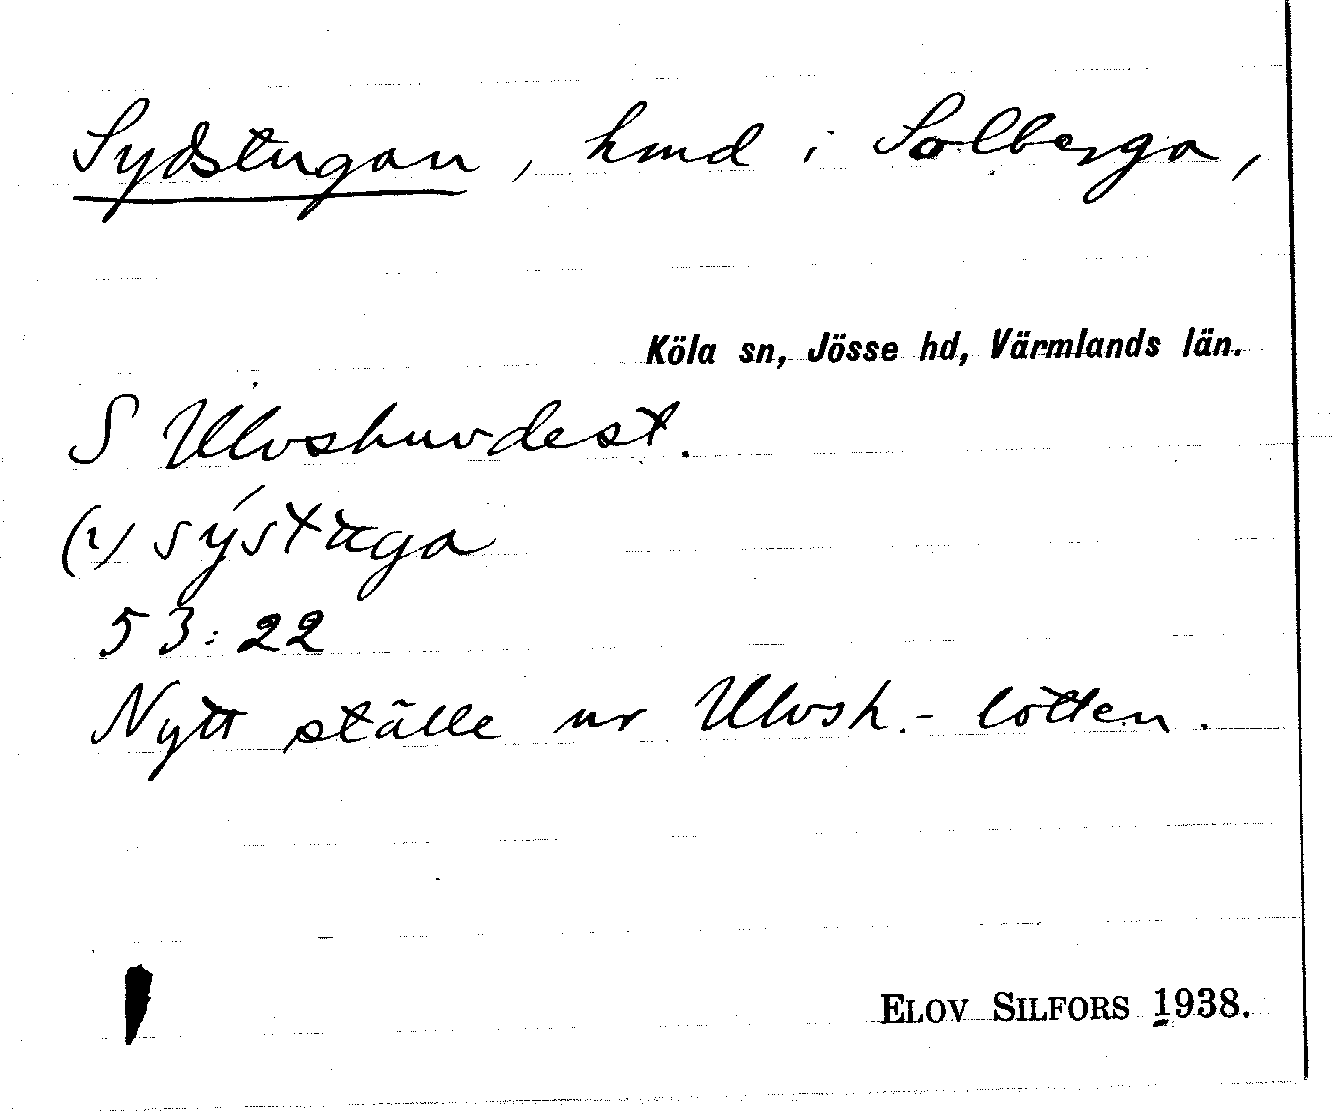 Sydstugan, hmd i Solberga,
Köla sn, Jösse hd, Värmlands län.
S Ulvshuvdest.
(1) sýstuga
53:22
Nytt ställe ur Ulvsh.-lotten.
ELOV SILFORS 1938.